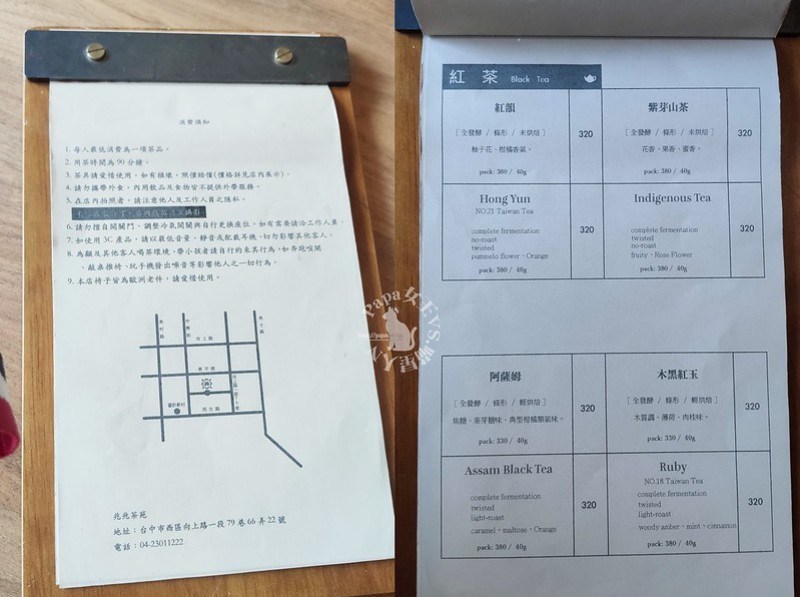 消費須知
1. 每人最低消費為一項茶品。
2. 用茶時間為90分鐘。
3. 茶具請愛惜使用，如有損壞，照價賠償(價格詳見店內展示)。
4. 請勿攜帶外食，內用飲品及食物皆不提供外帶服務。
5. 在店內拍照者，請注意他人及工作人員之隱私。
6. 請勿擅自開關門、調整冷氣開關與自行更換座位。如有需要請洽工作人員。
7. 如使用3C產品，請以最低音量、靜音或配戴耳機，切勿影響其他客人。
8. 為顧及其他客人喝茶環境，帶小孩者請自行約束其行為，如奔跑喧鬧
、敲桌推椅、玩手機發出噪音等影響他人之一切行為。
9. 本店椅子皆為歐洲老件，請愛惜使用。
向上路
兆兆茶苑
地址：台中市西區向上路一段79巷66弄22號
電話：04-23011222
紅茶 Black Tea
紅韻
[ 全發酵 / 條形 / 未烘焙 ]
柚子花、柑橘香氣。
pack: 380 / 40g
320
紫芽山茶
[ 全發酵 / 條形 / 未烘焙 ]
花香、果香、蜜香。
pack: 380 / 40g
320
Hong Yun
NO.21 Taiwan Tea
complete fermentation
no-roast
twisted
pummelo flower、Orange
pack: 380 / 40g
320
Indigenous Tea
complete fermentation
twisted
no-roast
fruity、Rose Flower
pack: 380 / 40g
320
阿薩姆
[ 全發酵 / 條形 / 輕烘焙 ]
焦糖、麥芽糖味、典型柑橘類氣味。
pack: 330 / 40g
320
木黑紅玉
[ 全發酵 / 條形 / 輕烘焙 ]
木質調、薄荷、肉桂味。
pack: 330 / 40g
320
Assam Black Tea
complete fermentation
twisted
light-roast
caramel、maltose、Orange
pack: 380 / 40g
320
Ruby
NO.18 Taiwan Tea
complete fermentation
twisted
light-roast
woody amber、mint、cinnamon
pack: 380 / 40g
320
Papa女EVS.喵星人